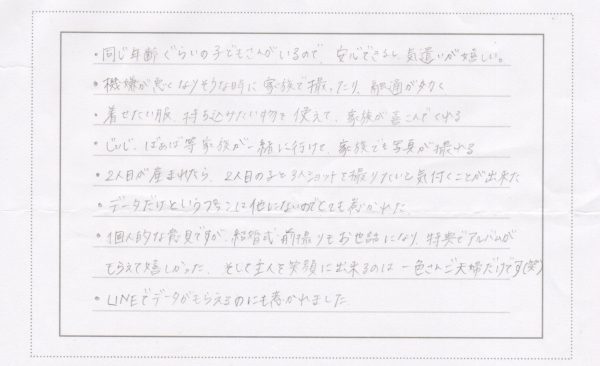 ・同じ年齢ぐらいの子どもさんがいるので、安心できるし、気遣いが嬉しい。
・機嫌が悪くなりそうな時に家族で撮ったり、融通がきく
・着せたい服、持ち込みたい物を使えて、家族が喜んでくれる
・じぃじ、ばぁば等家族が一緒に行けて、家族でも写真が撮れる
・2人目が産まれたら、2人目の子と3人ショットを撮りたいと気付くことが出来た
・データだけというプランは他にないのでとても惹かれた
・個人的な意見ですが、結婚式前撮りもお世話になり、特典でアルバムが
もらえて嬉しかった、そして主人を笑顔に出来るのは一色さんご夫婦だけです(笑)
・LINEでデータがもらえるのにも惹かれました